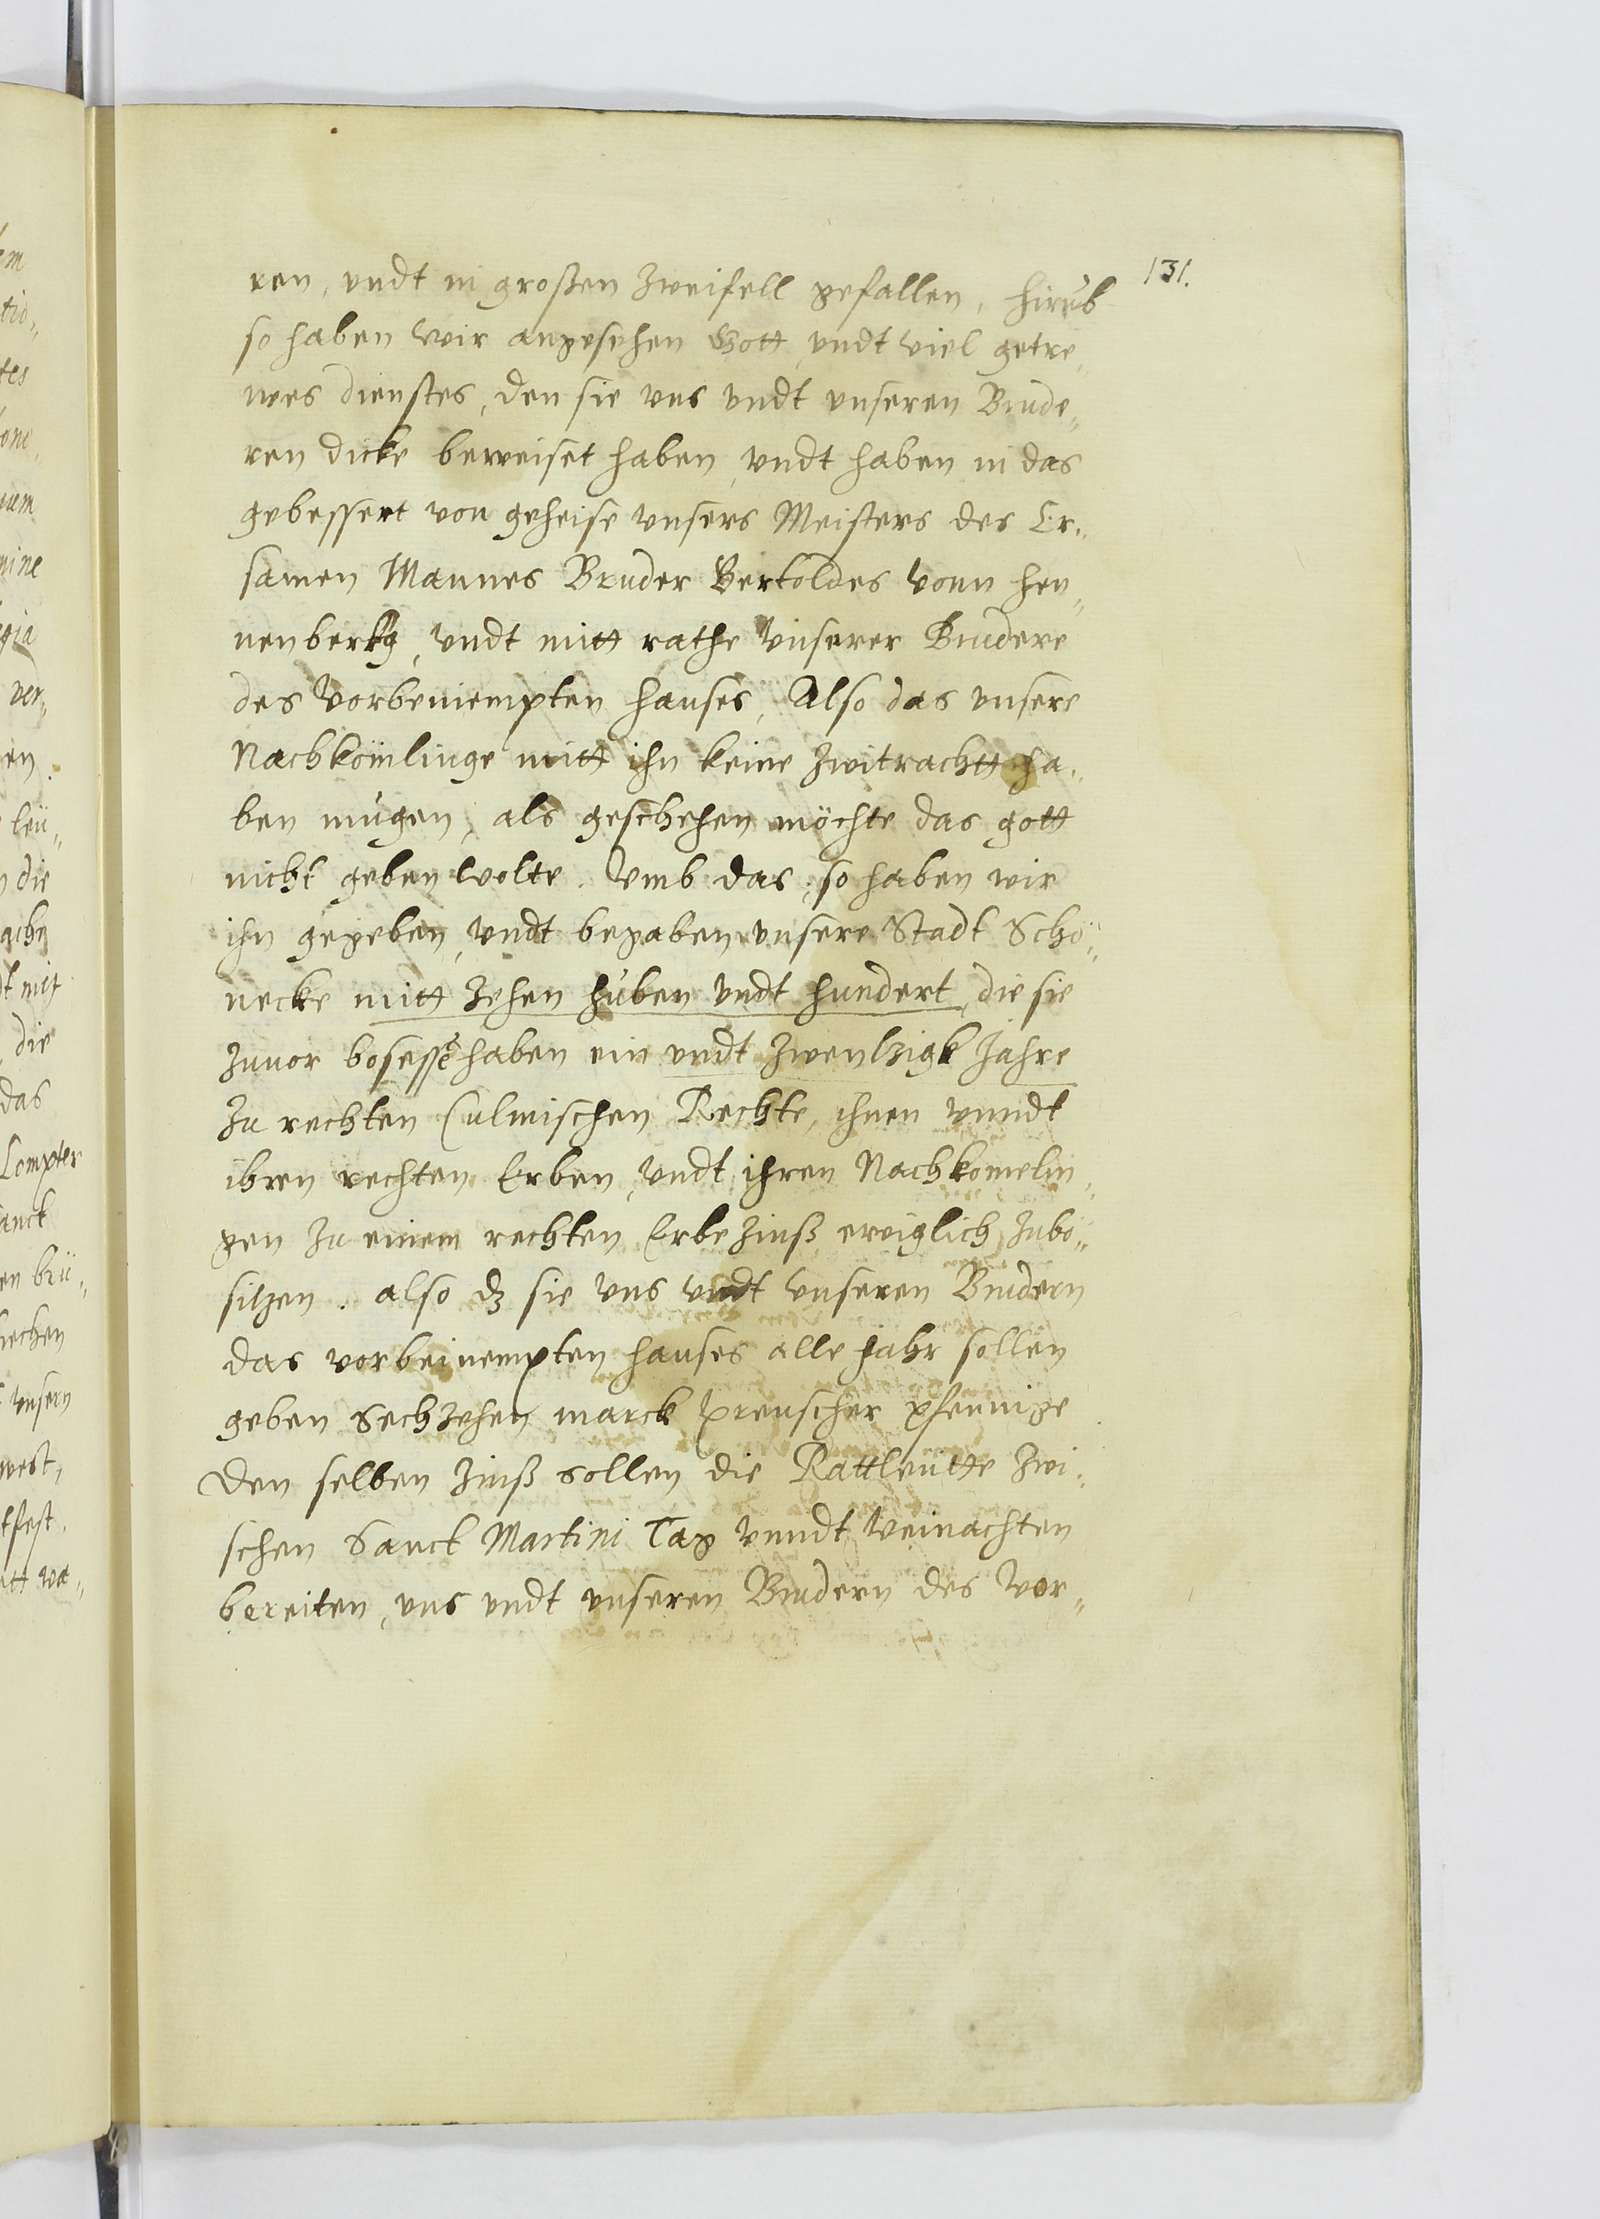 131.
ren, vndt in großen zweifell gefallen, hirub
so haben wir angesehen Gott, vndt viel getre„
wes dienstes, den sie vns vndt vnseren Brude„
ren dicke beweiset haben, vndt haben in das
gebessert von geheise vnsers Meisters des Er„
samen Mannes Bruder Bertoldes vonn hen„
nenberkg, vndt mitt rathe vnserer Brudere
des vorbeniempten hauses, Also das vnsere
Nachkömlinge mitt ihn keine zwitrachtt ha„
ben mügen, als geschehen möchte das gott
nicht geben wolte. Vmb das, so haben wir
ihn gegeben, vndt begaben vnsere Stadt Schö„
necke mitt zehen hüben vndt hundert, die sie
zuuor bosessē haben ein vndt zwentzigk Jahre
zu rechten Culmischen Rechte, ihnen vnndt
ihren rechten Erben, vndt ihren Nachkomelin„
gen zu einem rechten Erbezinß ewiglich zubö„
sitzen. also dz sie vns vndt vnseren Brudern
das vorbeinempten hauses alle Jahr sollen
geben Sechzehen marck preuscher pfennige
den selben zinß sollen die Rattleütte zwi„
schen Sanct Martini Tag vnndt Weinachten
bereiten, vns vndt vnseren Brudern des vor„